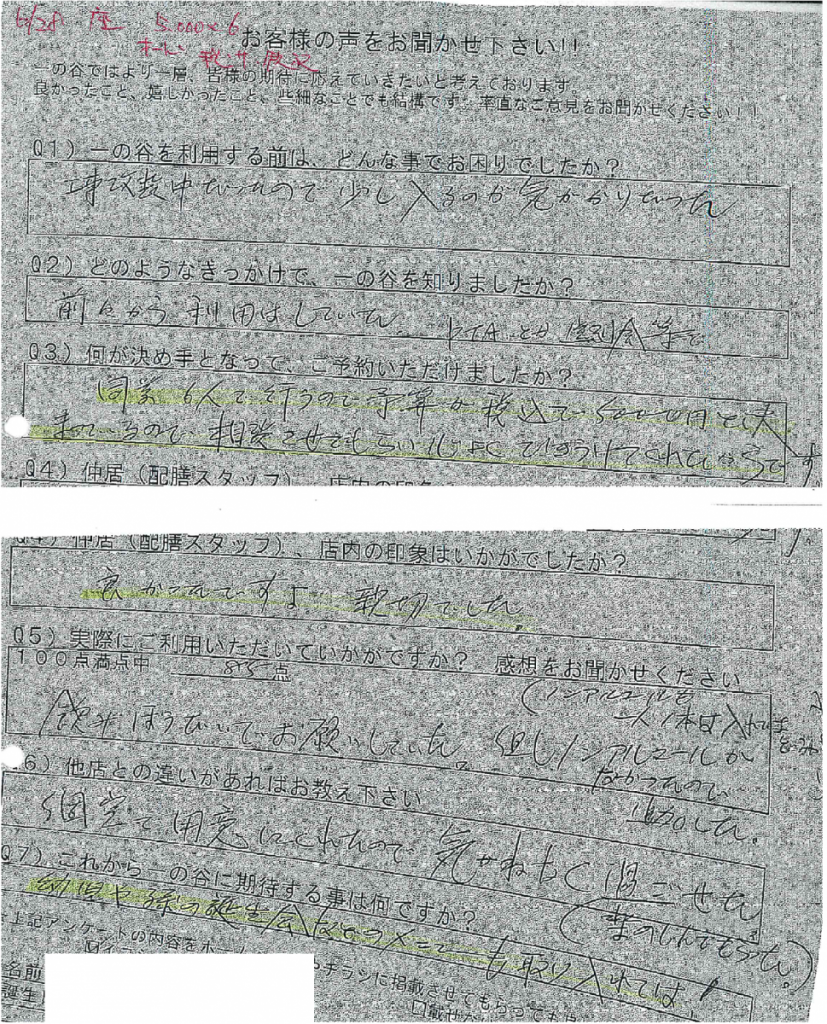 6/28 座 5,000×6
お客様の声をお聞かせ下さい!!
一の谷ではより一層、皆様の期待に応えていきたいと考えております。
良かったこと、嬉しかったこと、些細なことでも結構です。率直なご意見をお聞かせください!!
Q1)一の谷を利用する前は、どんな事でお困りでしたか?
改装中だったので少し入るのが気がかりだった
Q2)どのようなきっかけで、一の谷を知りましたか?
前々から利用はしていた。PTAとか 等で
Q3)何が決め手となって、ご予約いただけましたか?
同窓6人で行うので予算が税込で5000円と決
まっているので、相談させてもらい快くひきうけてくれたからです
Q4)仲居(配膳スタッフ)、店内の印象
Q4)仲居(配膳スタッフ)、店内の印象はいかがでしたか?
良かったですよ 親切でした。
Q5)実際にご利用いただいていかがですか? 感想をお聞かせください
100点満点中 85点
(ノンアルコールも
一人1本は入れ
飲みほうだいでお願いしていた。但しノンアルコールが
なかったので
Q6)他店との違いがあればお教え下さい
個室で用意してくれたので気がねなく過ごせた
Q7)これから一の谷に期待する事は何ですか?
(楽しんでもらった。)
幼児や孫の誕生会などのメニューも取り入れては!
上記アンケートの内容をホーム
チラシに掲載させてもらっても
名前
誕生